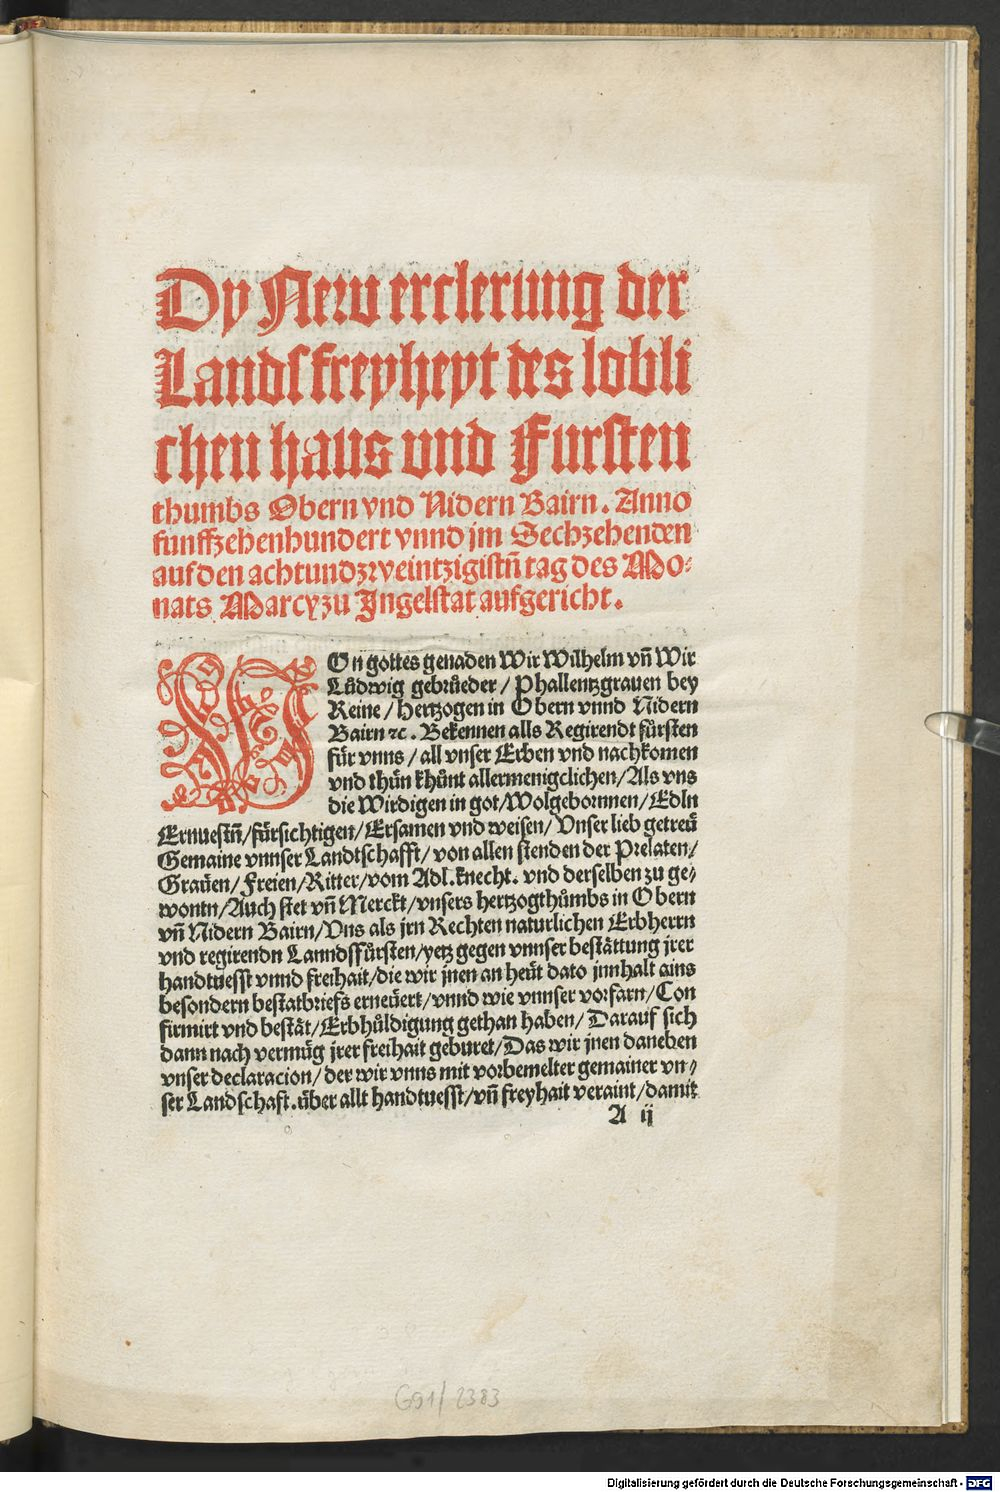 Dy New erclerung der
Landsfreyheyt des lobli
chen haus vnd Fursten
thumbs Obern vnd Nidern Bairn. Anno
funffzehenhundert vnnd jm Sechzehenden
auf den achtundzweintzigistn̄ tag des Mo⸗
nats Marcy zu Ingelstat aufgericht.
VOn gottes genaden Wir Wilhelm vn̄ Wir
Lůdwig gebrůeder / Phallentzgrauen bey
Reine / Hertzogen in Obern vnnd Nidern
Bairn ⁊c. Bekennen alls Regirendt fůrsten
fůr vnns / all vnser Erben vnd nachkomen
vnd thůn khůnt allermenigclichen / Als vns
die Wirdigen in got / Wolgebornnen / Edln
Ernuestn̄ / fůrsichtigen / Ersamen vnd weisen / Vnser lieb getreů
Gemaine vnnser Landtschafft / von allen stenden der Prelaten /
Graůen / Freien / Ritter / vom Adl. knecht. vnd derselben zu ge⸗
wontn / Auch stet vn̄ Merckt / vnsers hertzogthůmbs in Obern
vn̄ Nidern Bairn / Vns als jrn Rechten naturlichen Erbherrn
vnd regirendn Lanndsfůrsten / yetz gegen vnnser beståttung jrer
handtuesst vnnd freihait / die wir jnen an heůt dato jnnhalt ains
besondern bestatbriefs erneůert / vnnd wie vnnser vorfarn / Con
firmirt vnd beståt / Erbhůldigung gethan haben / Darauf sich
dann nach vermůg jrer freihait geburet / Das wir jnen daneben
vnser declaracion / der wir vnns mit vorbemelter gemainer vn⸗
ser Landschaft. ůber allt handtuesst / vn̄ freyhait veraint / damit
A ij
G91/2383
Digitalisierung gefördert durch die Deutsche Forschungsgemeinschaft - DFG